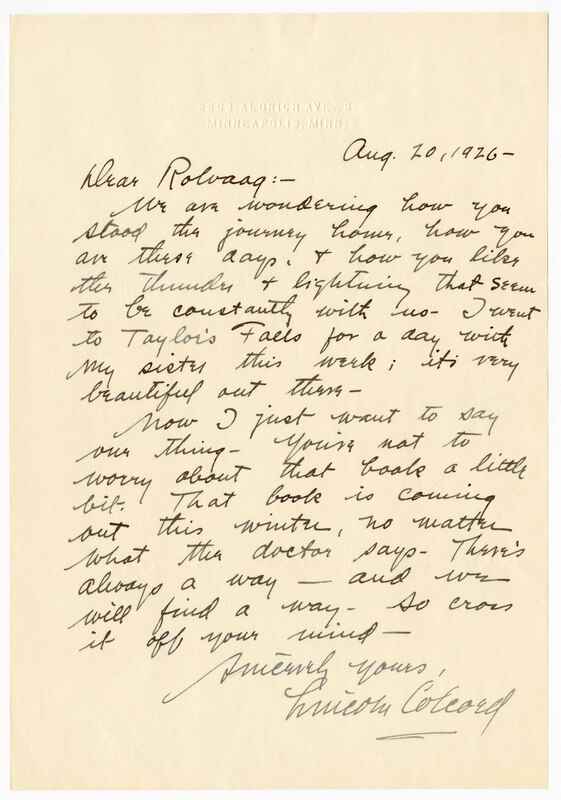 2203 ALDRICH AVE., S.
MINNEAPOLIS, MINN.
Aug. 20, 1926-
Dear Rolvaag:-
We are wondering how you
stood the journey home, how you
are these days, & how you like
the thunder & lightning that seem
to be constantly with us- I went
to Taylor's Falls for a day with
my sister this week; it's very
beautiful out there-
Now I just want to say
one thing- You're not to
worry about that book a little
bit. That book is coming
out this winter, no matter
what the doctor says- There's
always a way — and we
will find a way- So cross
it off your mind-
Sincerely yours,
Lincoln Colcord